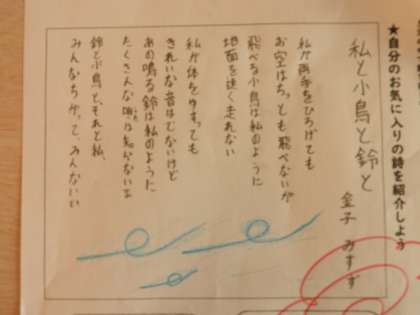 ★自分のお気に入りの詩を紹介しよう
私と小鳥と鈴と
金子 みすず
私が両手をひろげても
お空はちっとも飛べないが
飛べる小鳥は私のように
地面を速く走れない
私が体をゆすっても
きれいな音はでないけど
あの鳴る鈴は私のように
たくさんな唄は知らないよ
鈴と小鳥と、それと私、
みんなちがって、みんないい